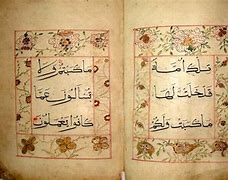 تلك امة
قد خلت لها
ما كسبت ولكم
ما كسبتم ولا
تسألون عما
كانوا يعملون